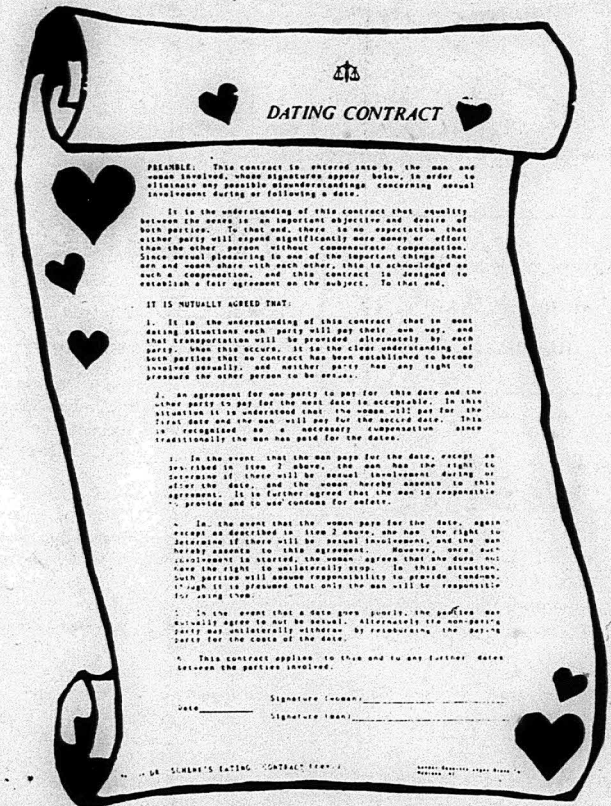 DATING CONTRACT
PREAMBLE: This contract is entered into by the man and
woman involved, whose signatures appear below, in order to
eliminate any possible misunderstandings concerning sexual
involvement during or following a date.
It is the understanding of this contract that equality
between the sexes is an important objective and desire of
both parties. To that end, there is no expectation that
either party will expend significantly more money or effort
than the other person without commensurate compensation.
Since sexual pleasuring is one of the important things that
men and women share with each other, this is acknowledged as
such a compensation, and this contract is designed to
establish a fair agreement on the subject. To that end,
IT IS MUTUALLY AGREED THAT:
1. It is the understanding of this contract that in most
dating situations each party will pay their own way, and
that transportation will be provided alternately by each
party. When this occurs, it is the clear understanding of
both parties that no contract has been established to become
involved sexually, and neither party has any right to
pressure the other person to be sexual.
2. An agreement for one party to pay for this date and the
other party to pay for the next date is acceptable. In this
situation it is understood that the woman will pay for the
first date and the man will pay for the second date. This
is recognized as a necessary compensation since
traditionally the man has paid for the dates.
3. In the event that the man pays for the date, except as
described in item 2 above, the man has the right to
determine if there will be sexual involvement during or
after the date, and the woman hereby assents to this
agreement. It is further agreed that the man is responsible
to provide and to use condoms for safety.
4. In the event that the woman pays for the date, again
except as described in item 2 above, she has the right to
determine if there will be sexual involvement and the man
hereby assents to this agreement. However, once such
involvement is started, the woman agrees that she does not
have the right to unilaterally stop. In this situation
both parties will assume responsibility to provide condoms,
though it is presumed that only the man will be responsible
for using them.
5. In the event that a date goes poorly, the parties may
mutually agree to not be sexual. Alternately the non-paying
party may unilaterally withdraw by reimbursing the paying
party for the costs of the date.
6. This contract applies to this and to any further dates
between the parties involved.
Signature (woman)
Date
Signature (man)
DR. SCHENK'S DATING CONTRACT